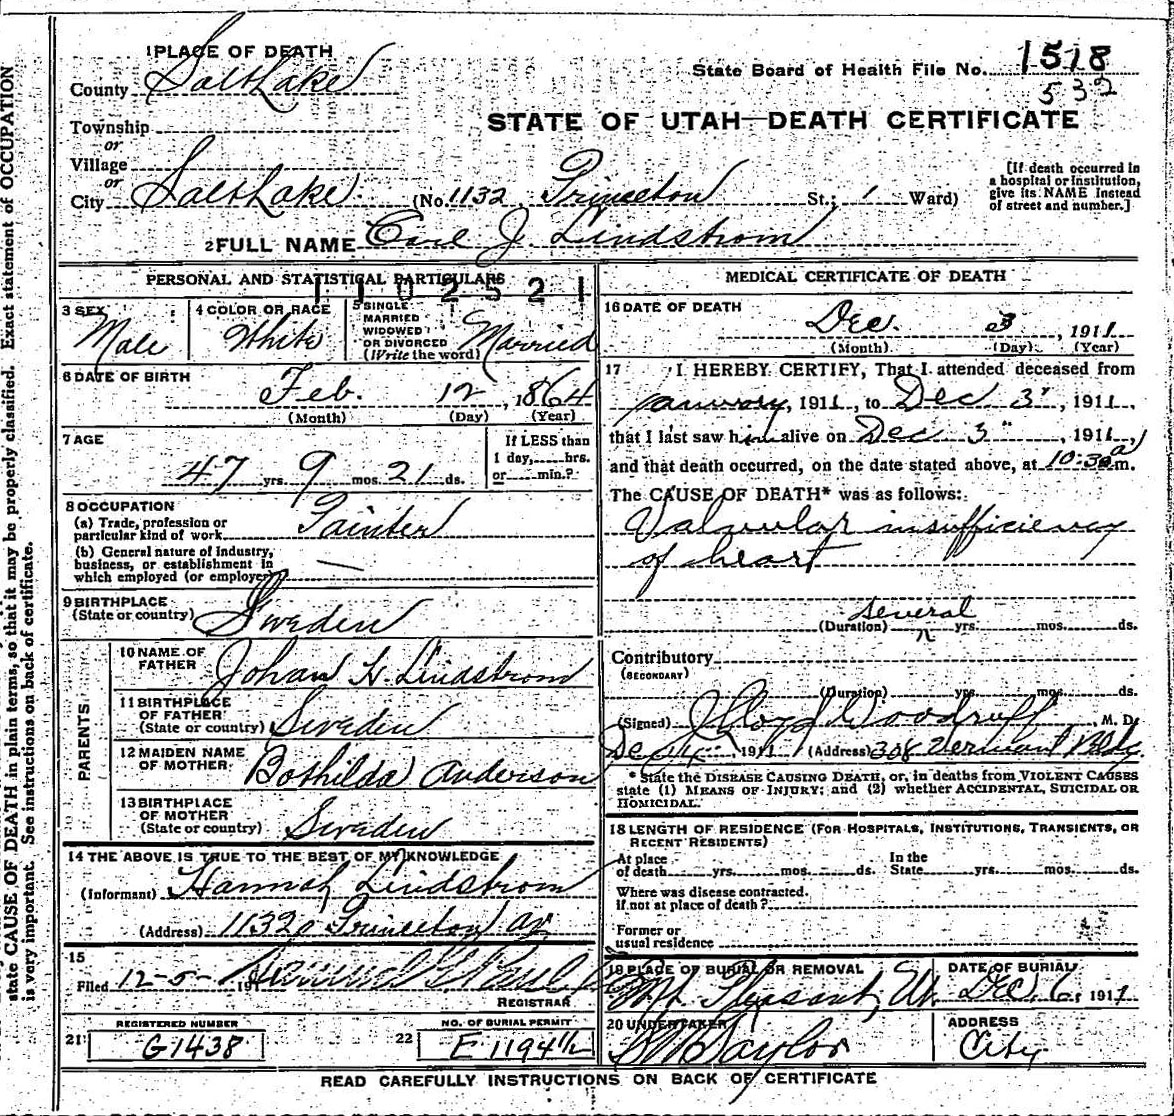 state CAUSE OF DEATH in plain terms, so that it may be properly classified. Exact statement of OCCUPATION
is very important. See instructions on back of certificate.
1 PLACE OF DEATH
County Salt Lake
Township
or
Village
or
City Salt Lake (No. 1132, Princeton St.; 1 Ward)
State Board of Health File No. 1518
532
STATE OF UTAH—DEATH CERTIFICATE
[If death occurred in
a hospital or institution,
give its NAME instead
of street and number.]
2 FULL NAME Carl J Lindstrom
PERSONAL AND STATISTICAL PARTICULARS
1102521
3 SEX
Male
4 COLOR OR RACE
White
5 SINGLE
MARRIED
WIDOWED
OR DIVORCED
(Write the word)
Married
6 DATE OF BIRTH
Feb. 12, 1864
(Month) (Day) (Year)
7 AGE
47 yrs. 9 mos. 21 ds.
If LESS than
1 day,......hrs.
or......min.?
8 OCCUPATION
(a) Trade, profession or
particular kind of work Painter
(b) General nature of industry,
business, or establishment in
which employed (or employer) —
9 BIRTHPLACE
(State or country) Sweden
PARENTS
10 NAME OF
FATHER Johan H. Lindstrom
11 BIRTHPLACE
OF FATHER
(State or country) Sweden
12 MAIDEN NAME
OF MOTHER Bothilda Anderson
13 BIRTHPLACE
OF MOTHER
(State or country) Sweden
14 THE ABOVE IS TRUE TO THE BEST OF MY KNOWLEDGE
(Informant) Hannah Lindstrom
(Address) 1132 Princeton av
15
Filed 12-5- 19
REGISTRAR
21 REGISTERED NUMBER
G1438
22 NO. OF BURIAL PERMIT
E 1194½
MEDICAL CERTIFICATE OF DEATH
16 DATE OF DEATH
Dec. 3, 1911
(Month) (Day) (Year)
17 I HEREBY CERTIFY, That I attended deceased from
January, 1911, to Dec 3", 1911,
that I last saw him alive on Dec 3", 1911,
and that death occurred, on the date stated above, at 10:30 a m.
The CAUSE OF DEATH* was as follows:
Valvular insufficiency
of heart
several
(Duration) yrs. mos. ds.
Contributory
(SECONDARY)
(Duration) yrs. mos. ds.
(Signed) Woodruff, M. D.
1911 (Address) 308 Vermont Bldg
* State the DISEASE CAUSING DEATH, or, in deaths from VIOLENT CAUSES
state (1) MEANS OF INJURY; and (2) whether ACCIDENTAL, SUICIDAL OR
HOMICIDAL.
18 LENGTH OF RESIDENCE (FOR HOSPITALS, INSTITUTIONS, TRANSIENTS, OR
RECENT RESIDENTS)
At place
of death yrs. mos. ds.
In the
State yrs. mos. ds.
Where was disease contracted.
If not at place of death?
Former or
usual residence
19 PLACE OF BURIAL OR REMOVAL
Mt. Pleasant, Ut.
DATE OF BURIAL
DEC. 6, 1911
20 UNDERTAKER
Taylor
ADDRESS
City
READ CAREFULLY INSTRUCTIONS ON BACK OF CERTIFICATE